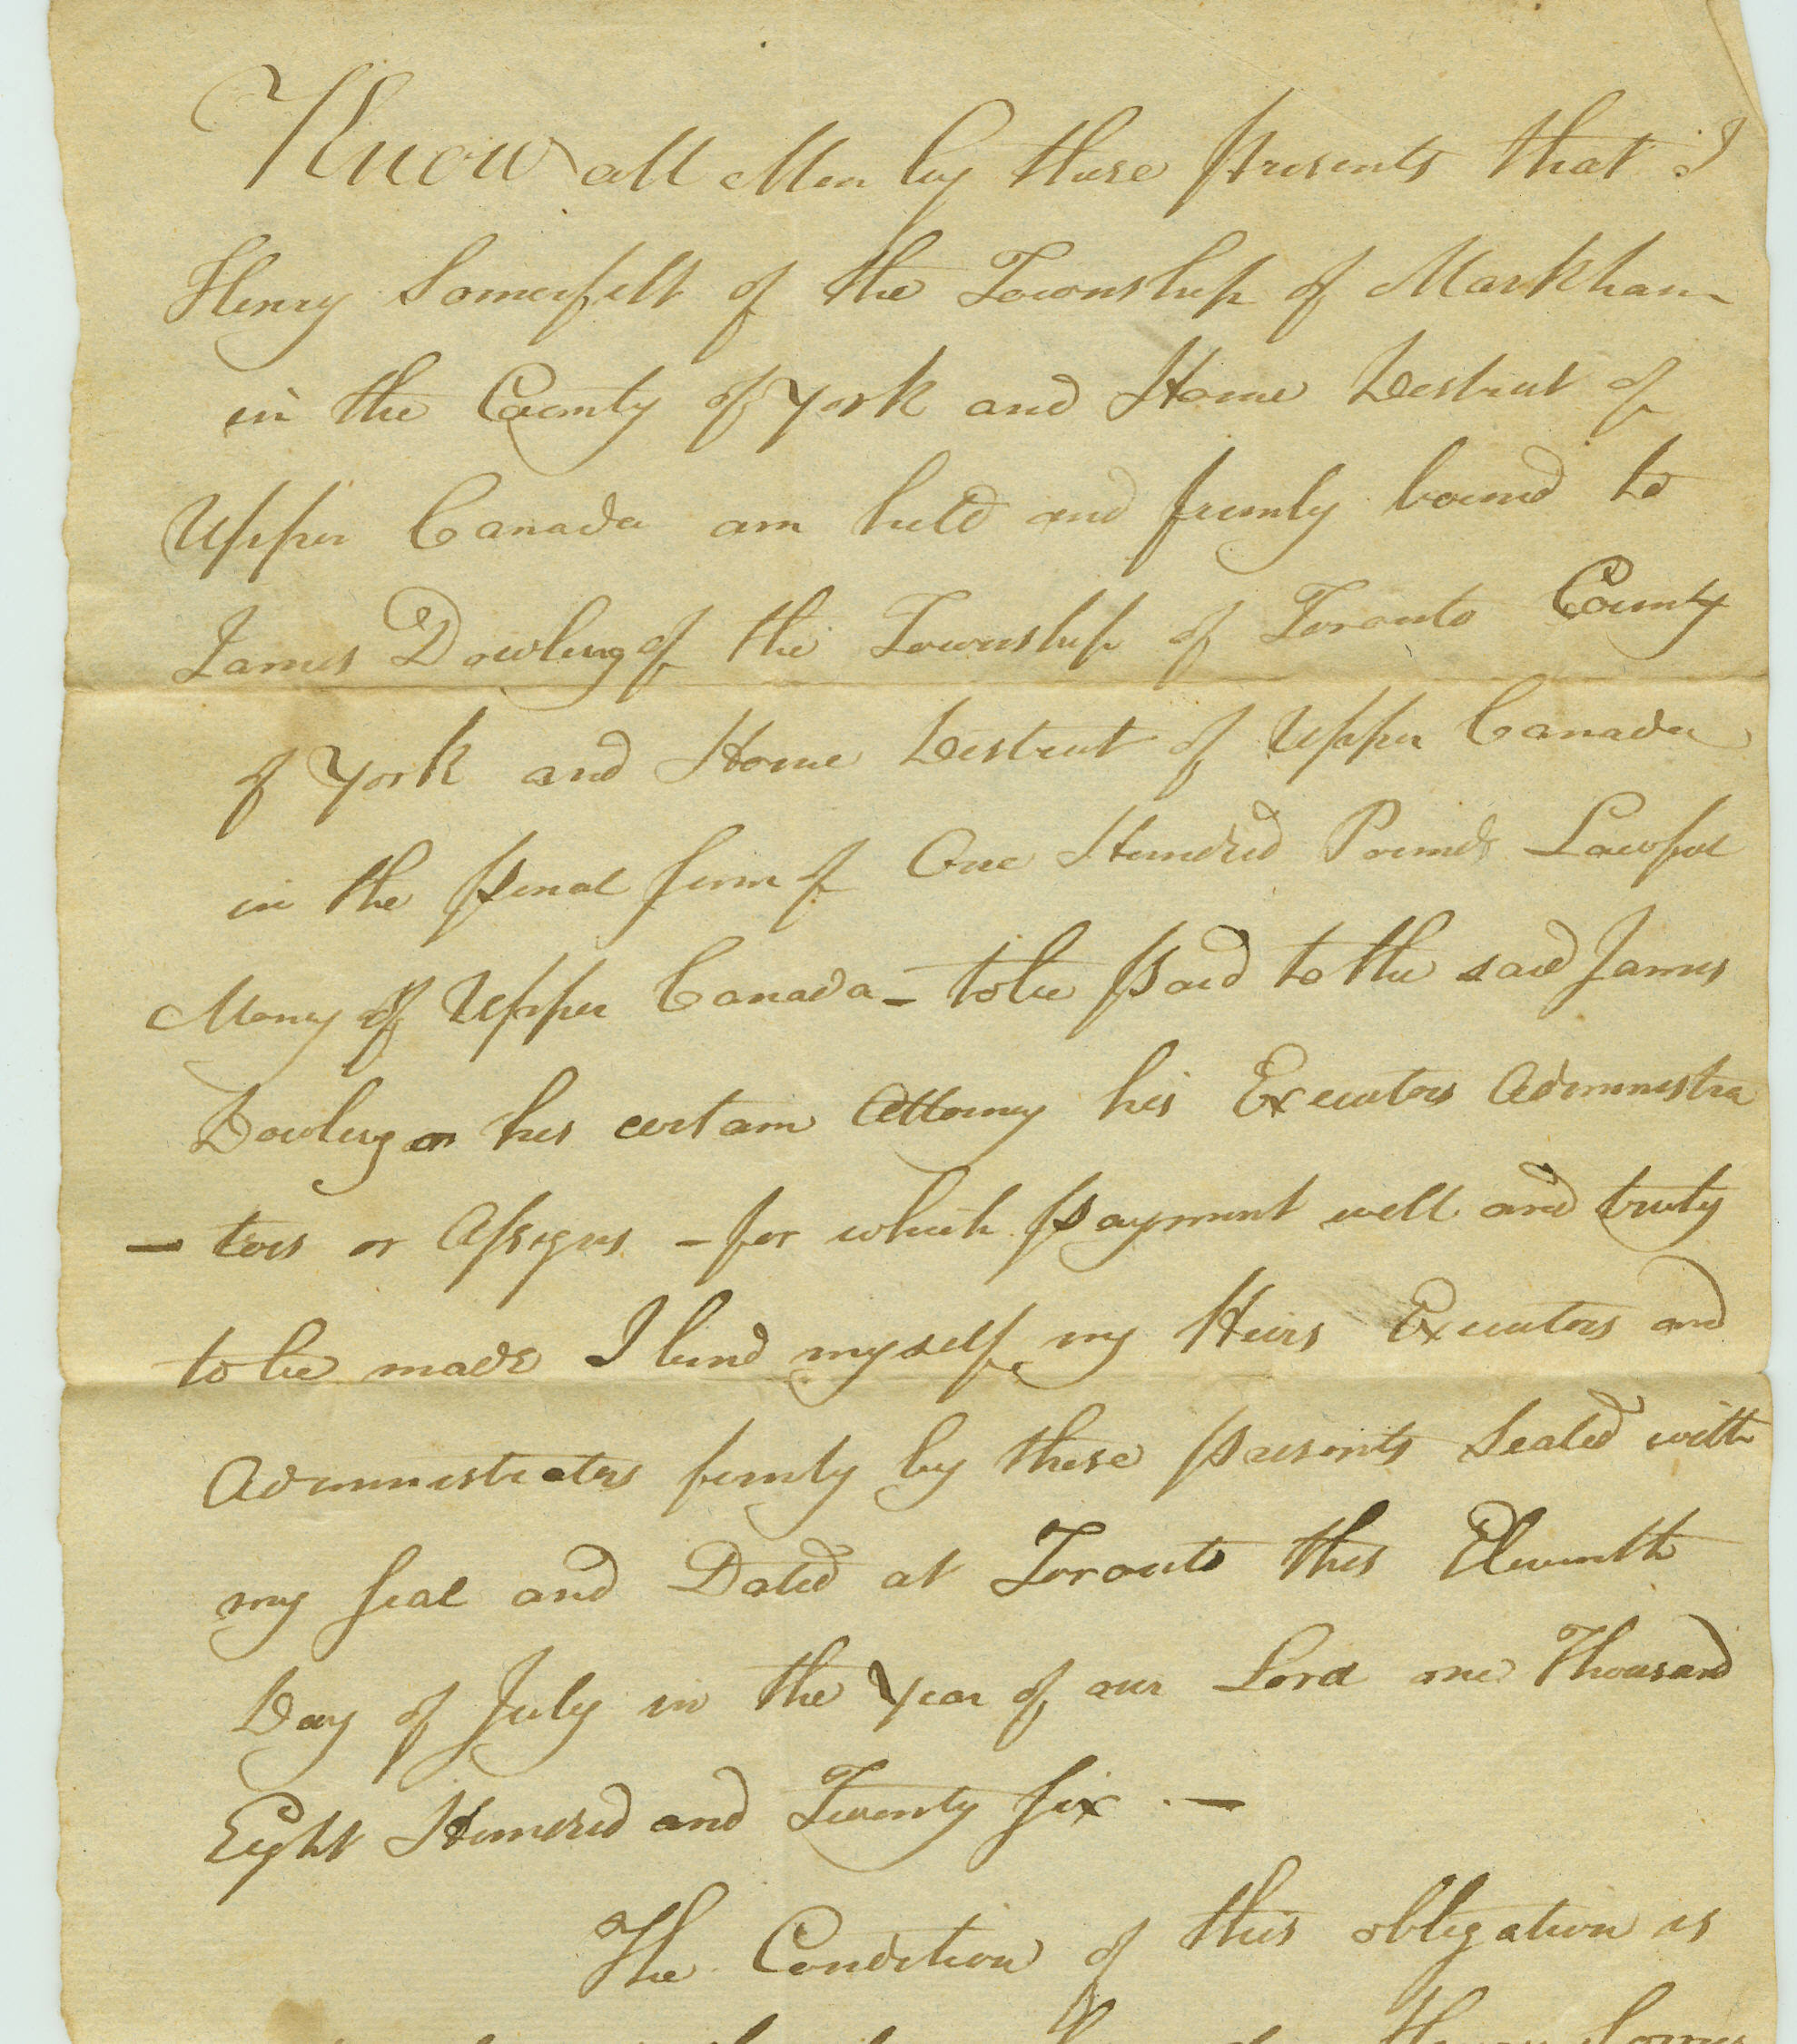 Know all Men by these Presents that I
Henry Somerfelt of the Township of Markham
in the County of York and Home District of
Upper Canada am held and firmly bound to
James Dowling of the Township of Toronto County
of York and Home District of Upper Canada
in the Penal sum of One Hundred Pounds Lawful
Money of Upper Canada – to be Paid to the said James
Dowling or his certain Attorney his Executors Administra
– tors or Assigns – for which Payment well and truly
to be made I bind myself my Heirs Executors and
Administrators firmly by these Presents Sealed with
my seal and Dated at Toronto this Eleventh
Day of July in the Year of our Lord one Thousand
Eight Hundred and Twenty six . –
The Condition of this obligation is